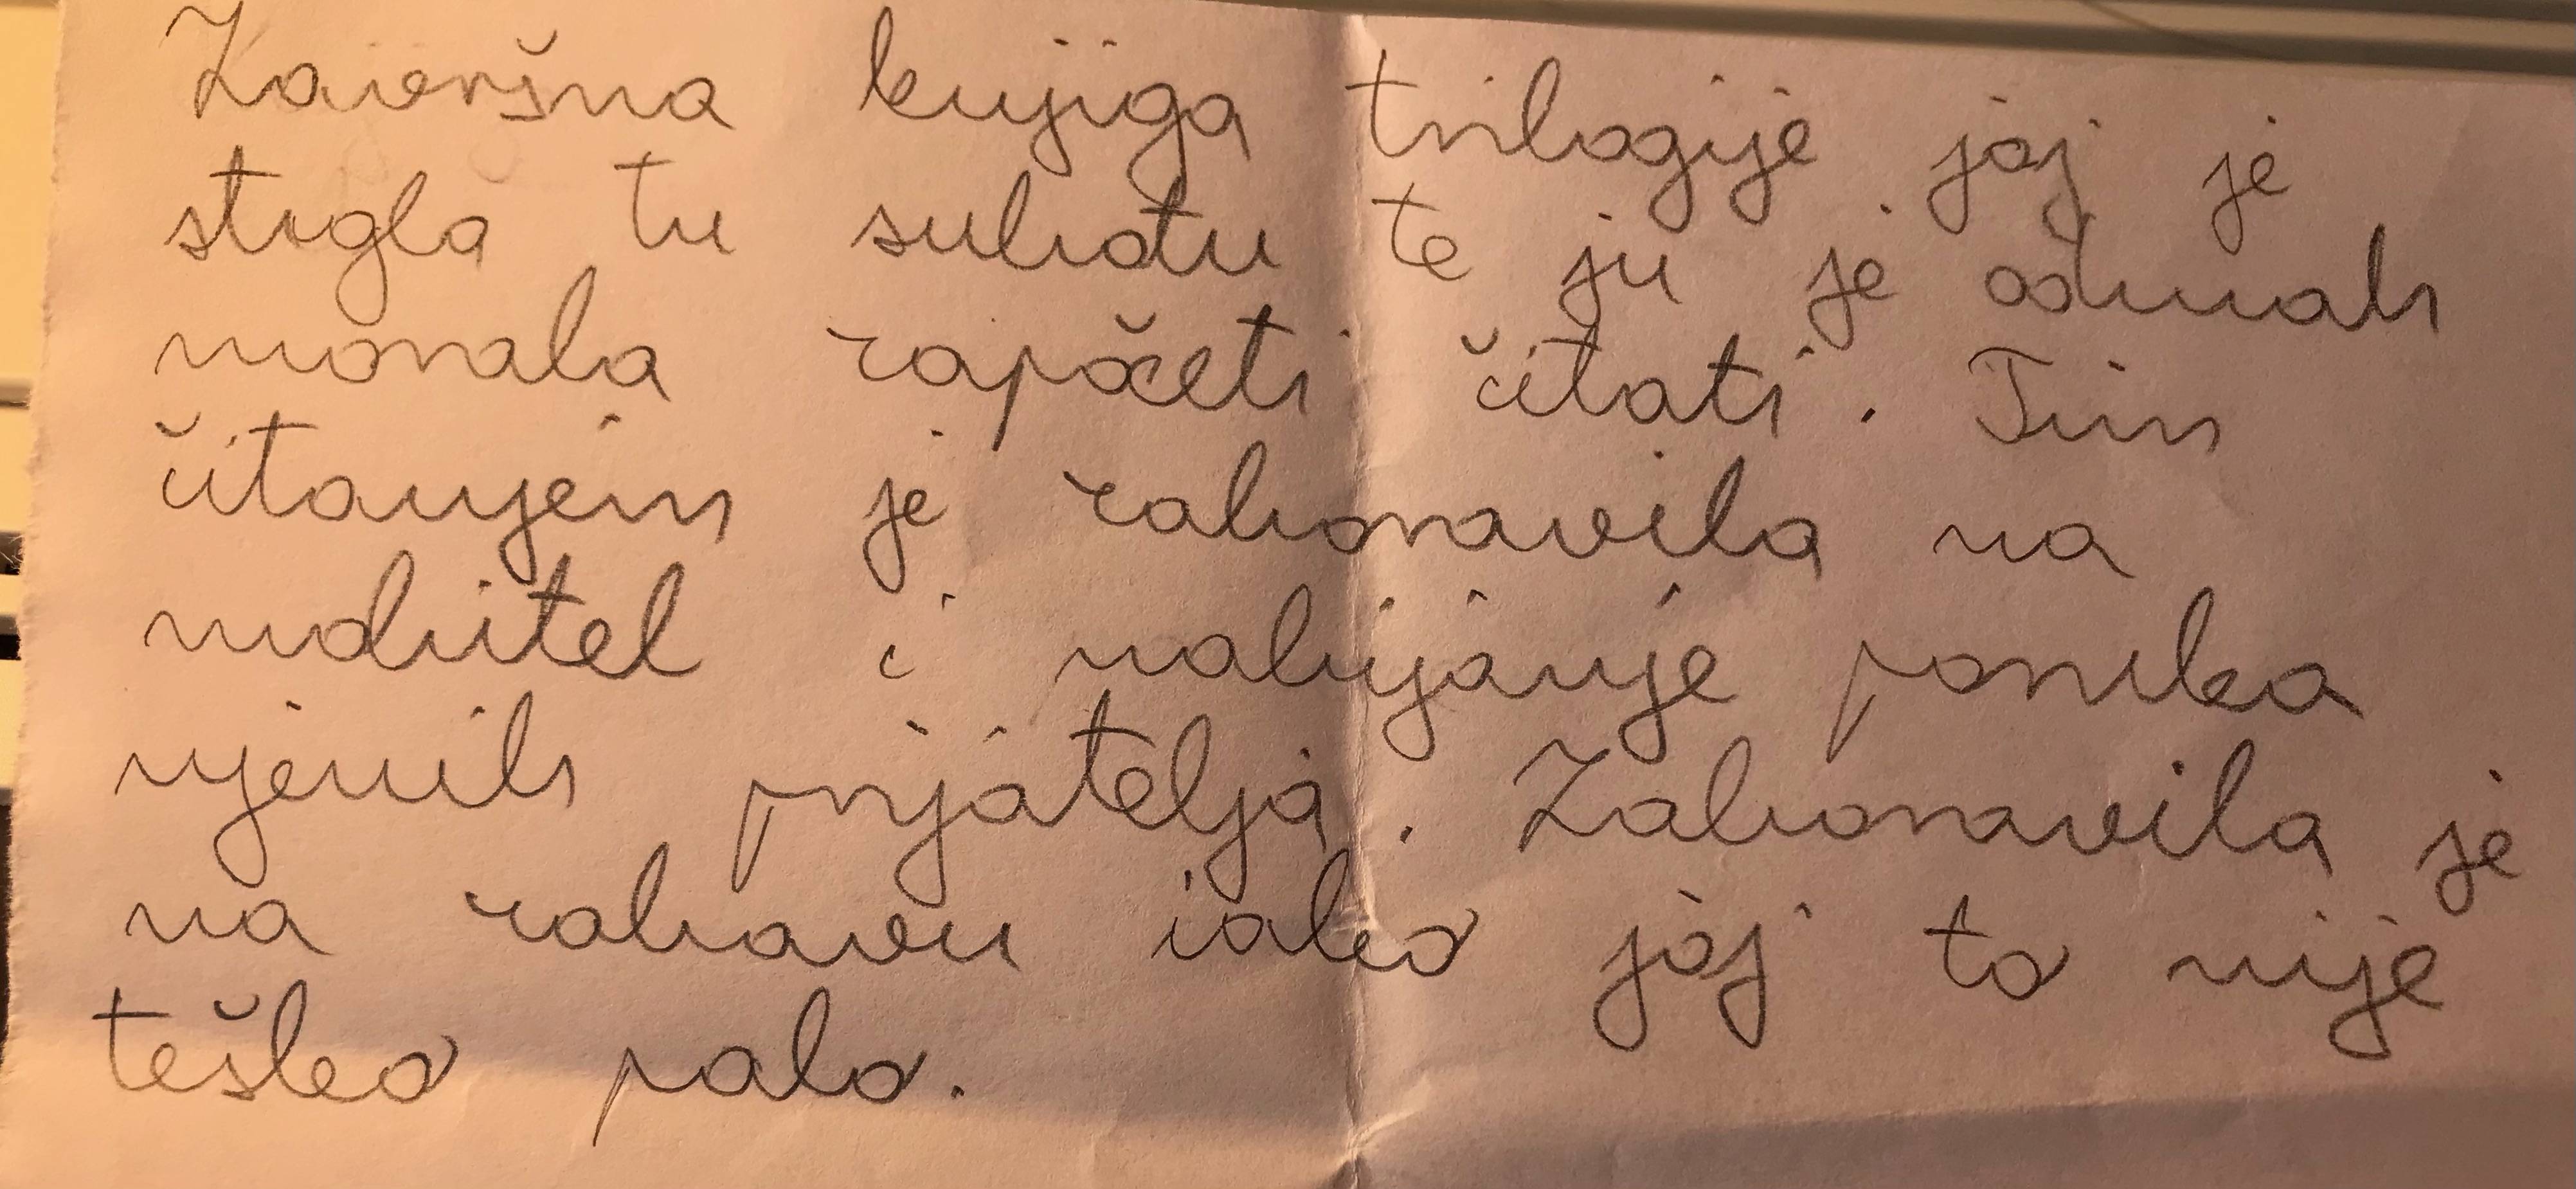 Završna knjiga trilogije joj je
stigla tu subotu te ju je odmah
morala započeti čitati. Tim
čitanjem je zaboravila na
mobitel i nabijanje poruka
njenih prijatelja. Zaboravila je
na zabavu iako joj to nije
teško palo.